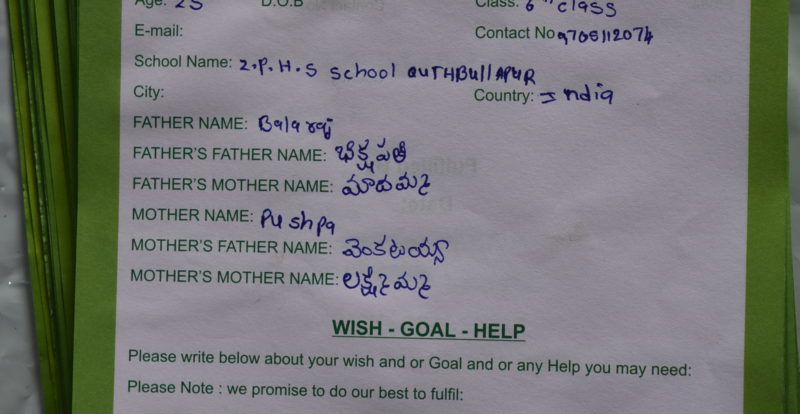 Age: 25 D.O.B Class: 6th class
E-mail: Contact No 9705112074
School Name: Z.P.H.S School QUTHBullAPUR
City: Country: India
FATHER NAME: Balaraj
FATHER'S FATHER NAME: భిక్షపతి
FATHER'S MOTHER NAME: మారుమ్మ
MOTHER NAME: Pushpa
MOTHER'S FATHER NAME: వెంకటయ్య
MOTHER'S MOTHER NAME: లక్ష్మమ్మ
WISH - GOAL - HELP
Please write below about your wish and or Goal and or any Help you may need:
Please Note : we promise to do our best to fulfil: